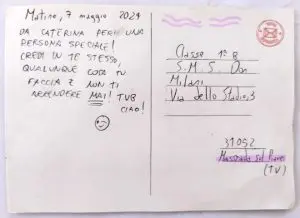 Matino, 7 maggio 2021
DA CATERINA PER UNA
PERSONA SPECIALE!
CREDI IN TE STESSO,
QUALUNQUE COSA TU
FACCIA E NON TI
ARRENDERE MAI! TVB
CIAO!
Classe 1ª B
S. M. S. Don
Milani
Via dello Stadio, 3
31052
Maserada sul Piave
(TV)